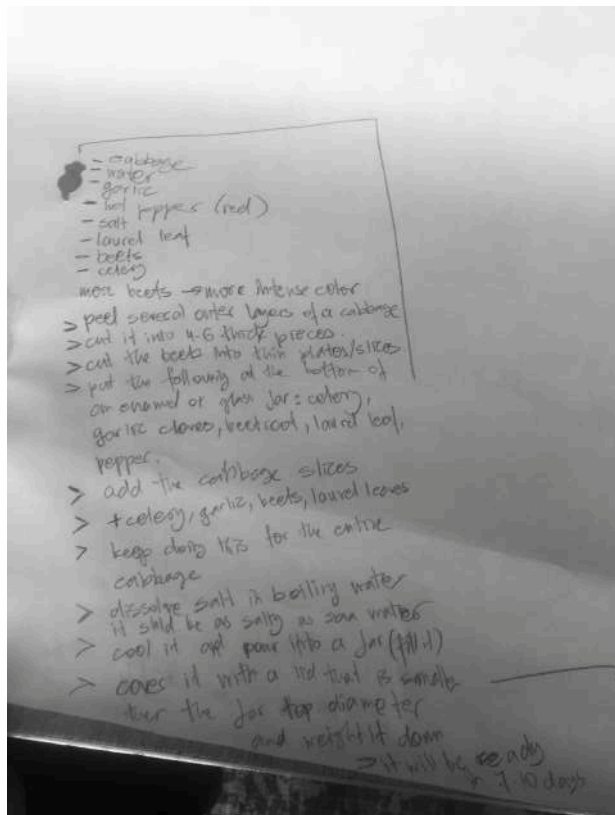 - cabbage
- water
- garlic
- hot pepper (red)
- salt
- laurel leaf
- beets
- celery
more beets → more intense color
> peel several outer layers of a cabbage
> cut it into 4-6 thick pieces.
> cut the beets into thin plates/slices
> put the following at the bottom of
an enamel or glass jar: celery,
garlic cloves, beetroot, laurel leaf,
pepper.
> add the cabbage slices
> + celery, garlic, beets, laurel leaves
> keep doing this for the entire
cabbage
> dissolve salt in boiling water
it shld be as salty as sea water
> cool it and pour into a jar (fill it)
> cover it with a lid that is smaller
than the jar top diameter
and weight it down
> it will be ready
in 7 10 days